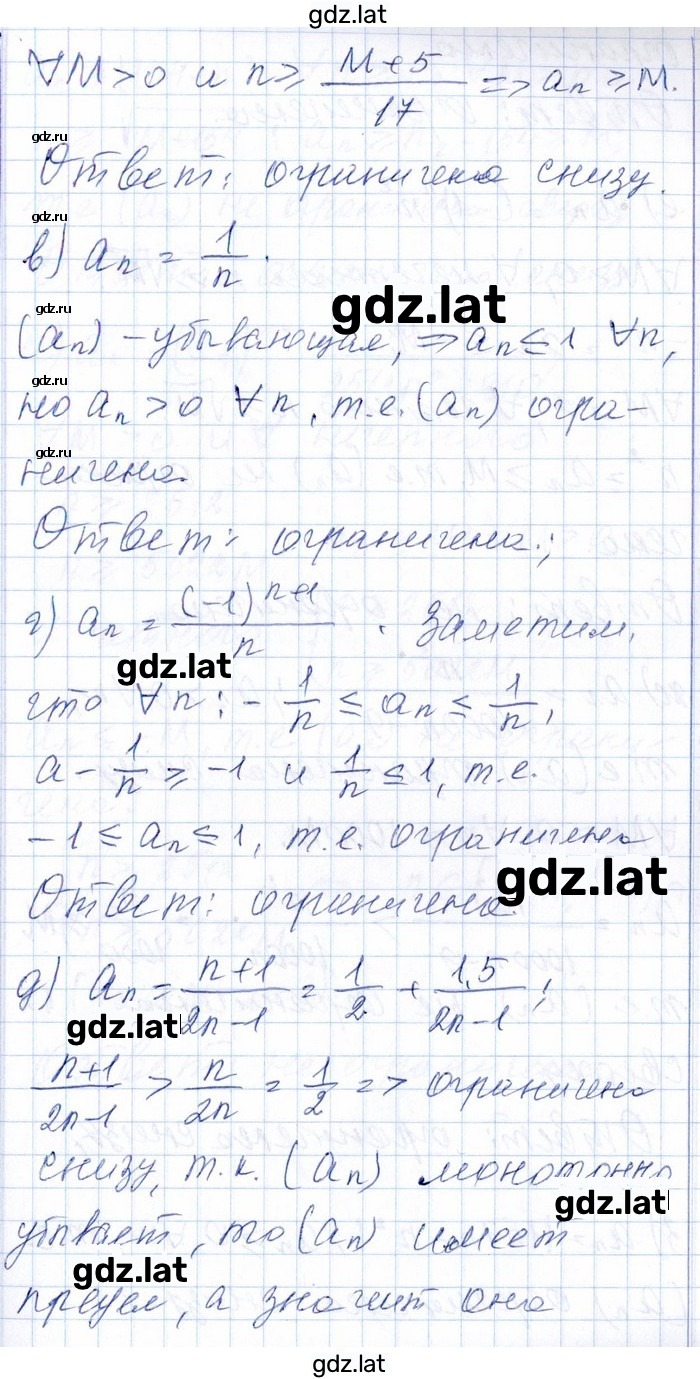 gdz.lat
∀M>0 и n ≥ (M+5)/17 => aₙ ≥ M.
gdz.ru
Ответ: ограничена снизу.
gdz.ru
в) aₙ = 1/n.
gdz.lat
gdz.ru
(aₙ) - убывающая, => aₙ ≤ 1 ∀n,
gdz.ru
но aₙ > 0 ∀n, т.е. (aₙ) огра-
ничена.
Ответ: ограничена.;
г) aₙ = (-1)ⁿ⁺¹/n. Заметим,
gdz.lat
что ∀n: -1/n ≤ aₙ ≤ 1/n,
а -1/n ≥ -1 и 1/n ≤ 1, т.е.
-1 ≤ aₙ ≤ 1, т.е. ограничена
gdz.lat
Ответ: ограничена.
д) aₙ = (n+1)/(2n-1) = 1/2 + 1,5/(2n-1);
gdz.lat
(n+1)/(2n-1) > n/2n = 1/2 => ограничена
снизу, т.к. (aₙ) монотонно
gdz.lat
убывает, то (aₙ) имеет
gdz.lat
предел, а значит она
gdz.lat